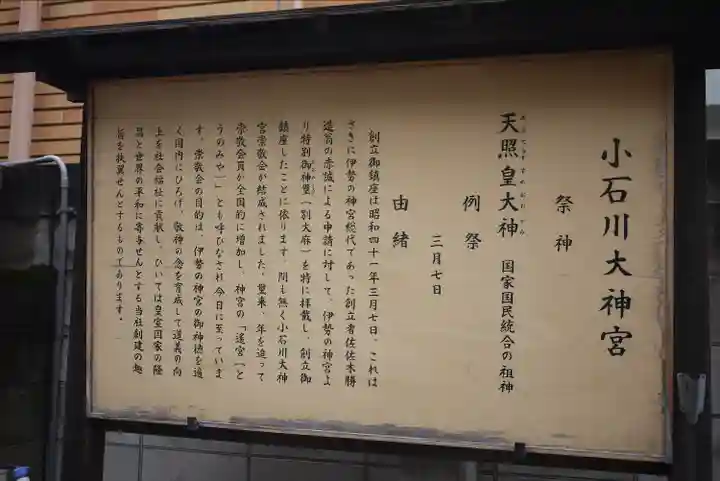 小石川大神宮
祭神
天照皇大神 国家国民統合の祖神
例祭
三月七日
由緒
創立御鎮座は昭和四十一年三月七日、これは
さきに伊勢の神宮総代であった創立者佐佐木勝
造翁の赤誠による申請に対して、伊勢の神宮よ
り特別御神璽(別大麻)を特に拝戴し、創立御
鎮座したことに依ります。間も無く小石川大神
宮崇敬会が結成されました。爾来、年を追って
崇敬会員が全国的に増加し、神宮の「遙宮」(と
うのみや)」とも呼びなされ今日に至っていま
す。崇敬会の目的は、伊勢の神宮の御神徳を遍
く国内にひろげ、敬神の念を育成して道義の向
上を社会福祉に貢献し、ひいては皇室国家の隆
昌と世界の平和に寄与せんとする当社創建の趣
旨を扶翼せんとするものであります。